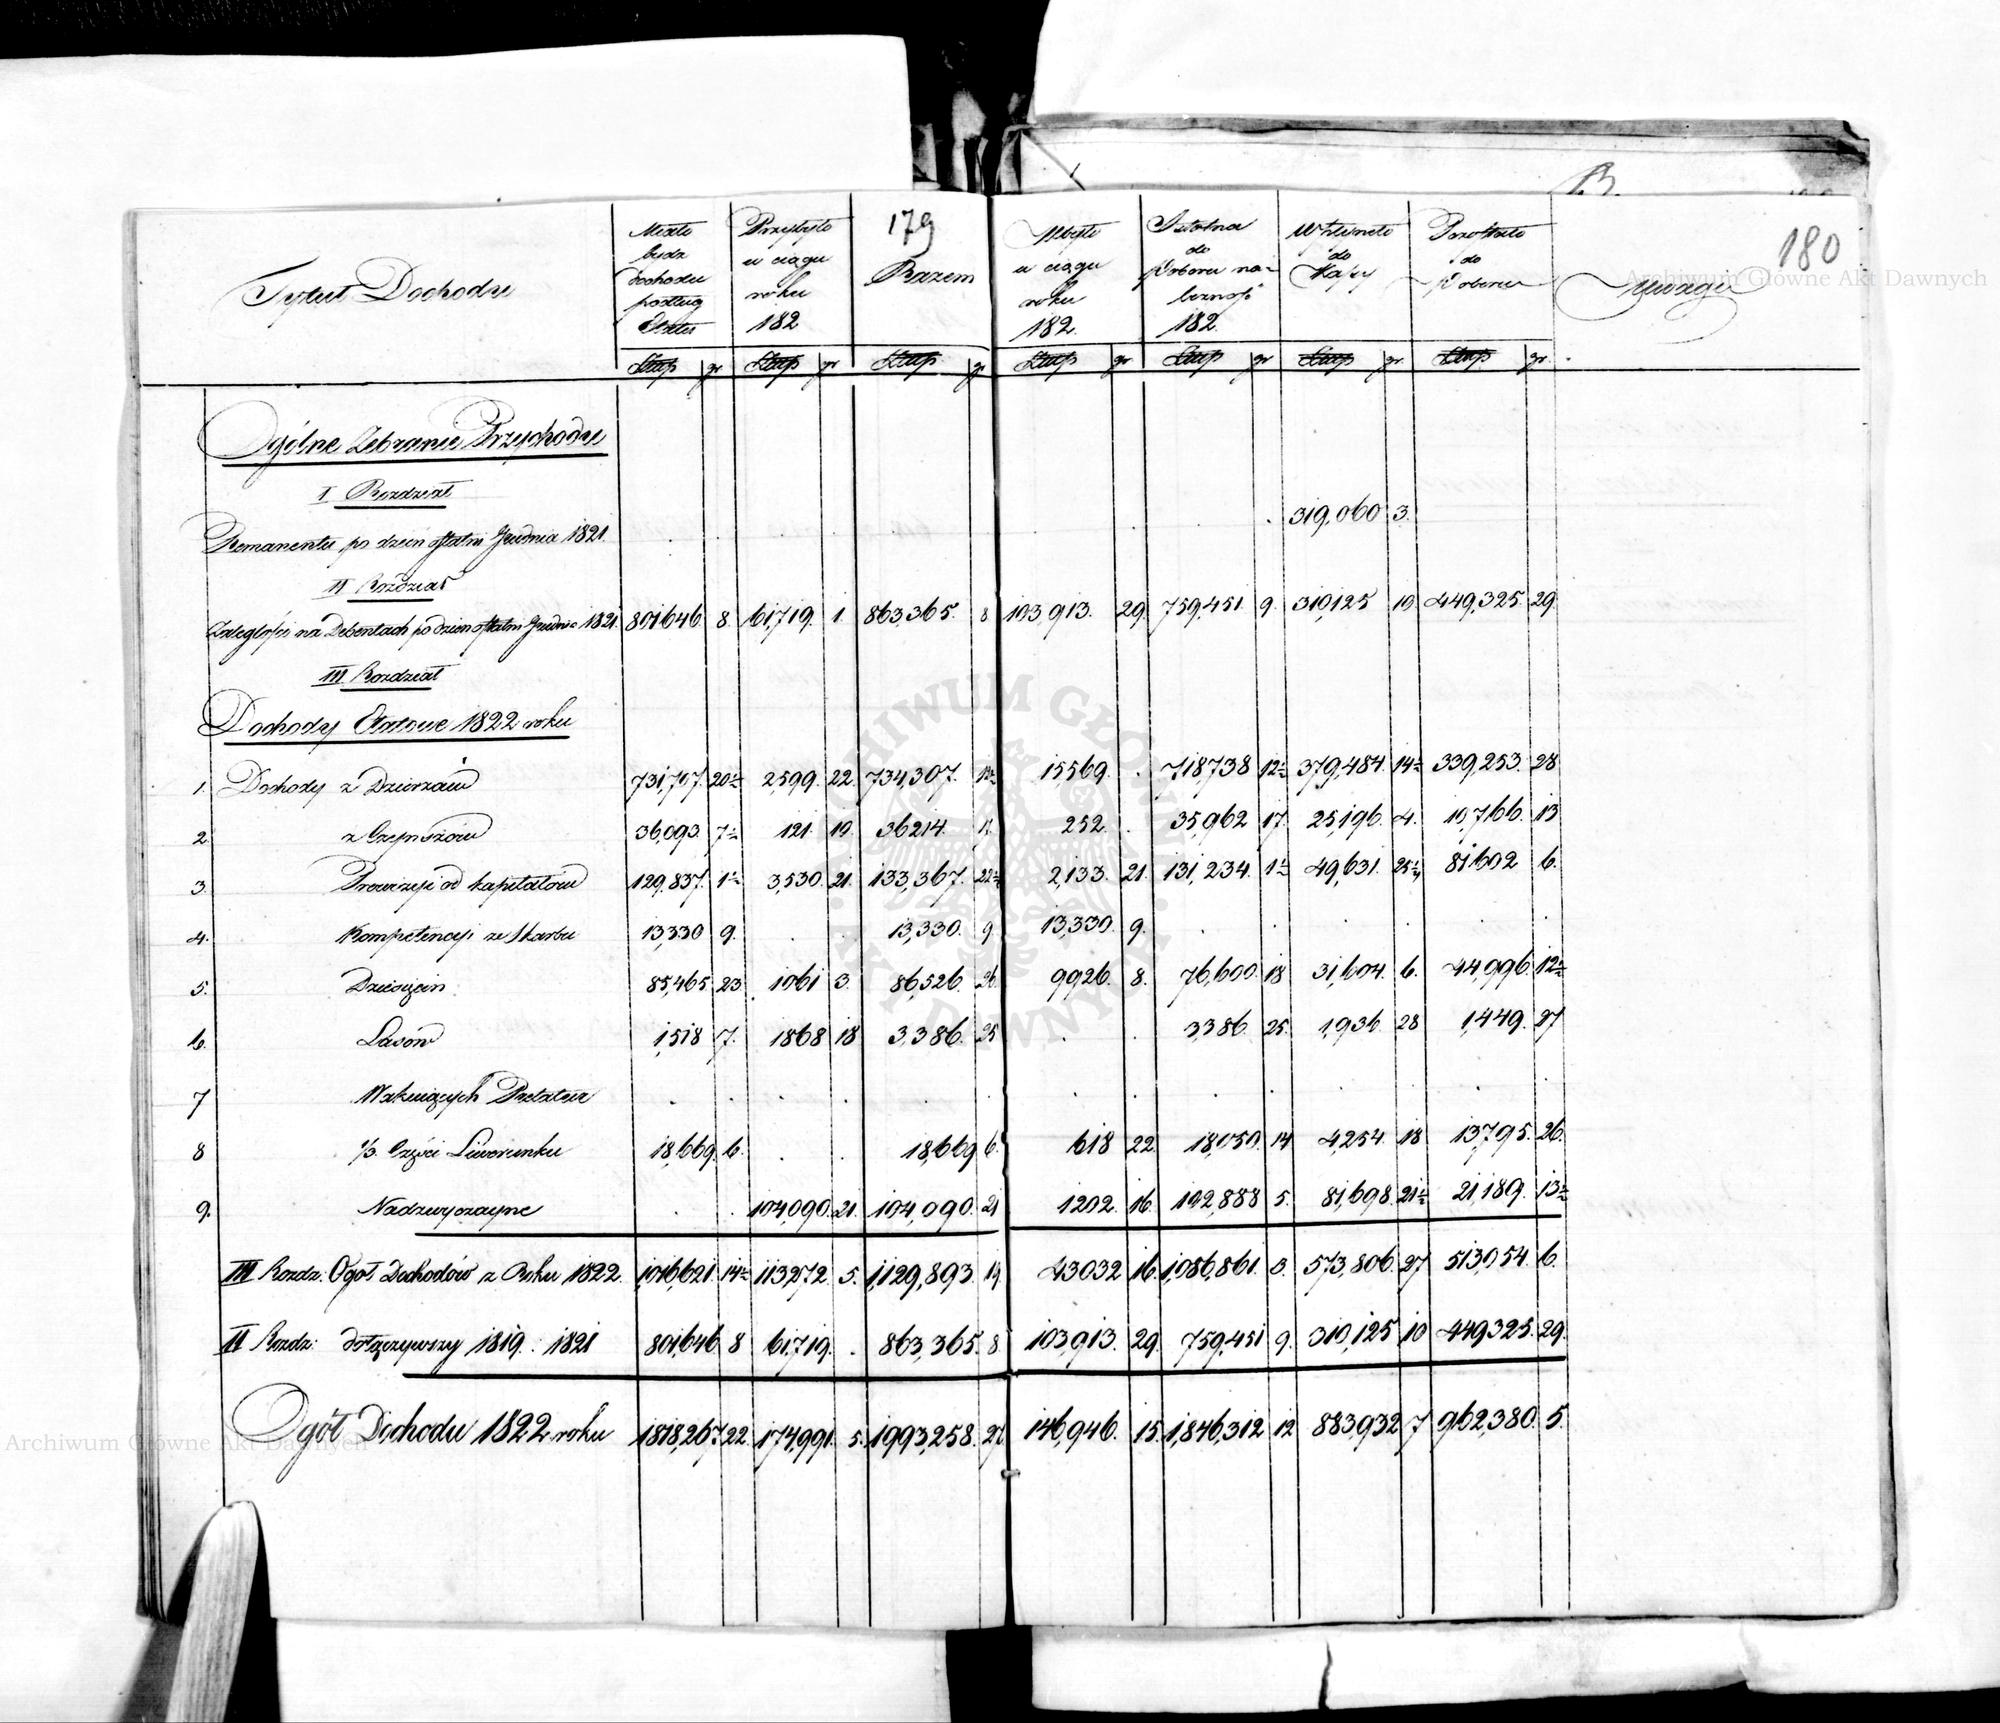 179
180
Tytuł Dochodu
Miało bydź dochodu podług Etatu
Przybyło w ciągu roku 182
Razem
Ubyło w ciągu roku 182.
Istotna do Poboru należność 182.
Wpłynęło do Kassy
Pozostało do Poboru
Uwagi
Złtup gr Złtup gr Złtup gr Złtup gr Złtup gr Złtup gr Złtup gr
Ogólne Zebranie Przychodu
I Rozdział
Remanentu po dzień ostatni Grudnia 1821. 319,060 3.
II Rozdział
Zaległości na Debentach po dzień ostatni Grudnia 1821. 801646 8. 61,719. 1. 863,365. 8 103,913. 29. 759,451. 9. 310,125 10 449,325. 29.
III Rozdział
Dochody Etatowe 1822 roku
1. Dochody z Dzierżaw 731,707. 20½ 2,599. 22. 734,307. 12½ 15,569. . 718,738 12½ 379,484. 14½ 339,253. 28
2. z Czynszów 36,093. 7½ 121. 10. 36214. 17. 252. . 35,962 17. 25,196. 4. 10,766. 13
3. Prowizyi od kapitałów 129,837. 1½ 3,530. 21. 133,367. 22½ 2,133. 21. 131,234. 1½ 49,631. 25½ 81,602 6.
4. Kompetencyi ze Skarbu 13,330 9. . . 13,330. 9. 13,330. 9. . . . . . .
5. Dziesięcin 85,465 23. 1061 3. 86,526. 26. 9926. 8. 76,600. 18 31,604. 6. 44,996. 12½
6. Lasów 1,518 7. 1868 18 3,386. 25 . . 3,386. 25. 1,936 28 1,449. 27
7 Wakuiących Prelatur
8 1/3. Części Liwerunku 18,669. 6. . . 18,669 6. 618 22. 18,050. 14 4,254. 18 13,795. 26.
9. Nadzwyczayne . . 104,090. 21. 104,090. 21 1202. 16. 102,888 5. 81,698. 21½ 21,189. 13½
III Rozdz: Ogół Dochodów z Roku 1822. 1,016,621. 14½ 113,272. 5. 1,129,893. 19. 43032 16. 1,086,861. 3. 573,806. 27 513,054. 6.
II Rozdz: dołączywszy 1819. : 1821 801,646 8 61,719. . 863,365. 8. 103,913. 29. 759,451 9. 310,125 10 449,325. 29.
Ogół Dochodu 1822 roku 1818,267. 22. 174,991. 5. 1,993,258. 27. 146,946. 15. 1,846,312 12 883,932 7 962,380. 5.
Archiwum Główne Akt Dawnych
Archiwum Główne Akt Dawnych